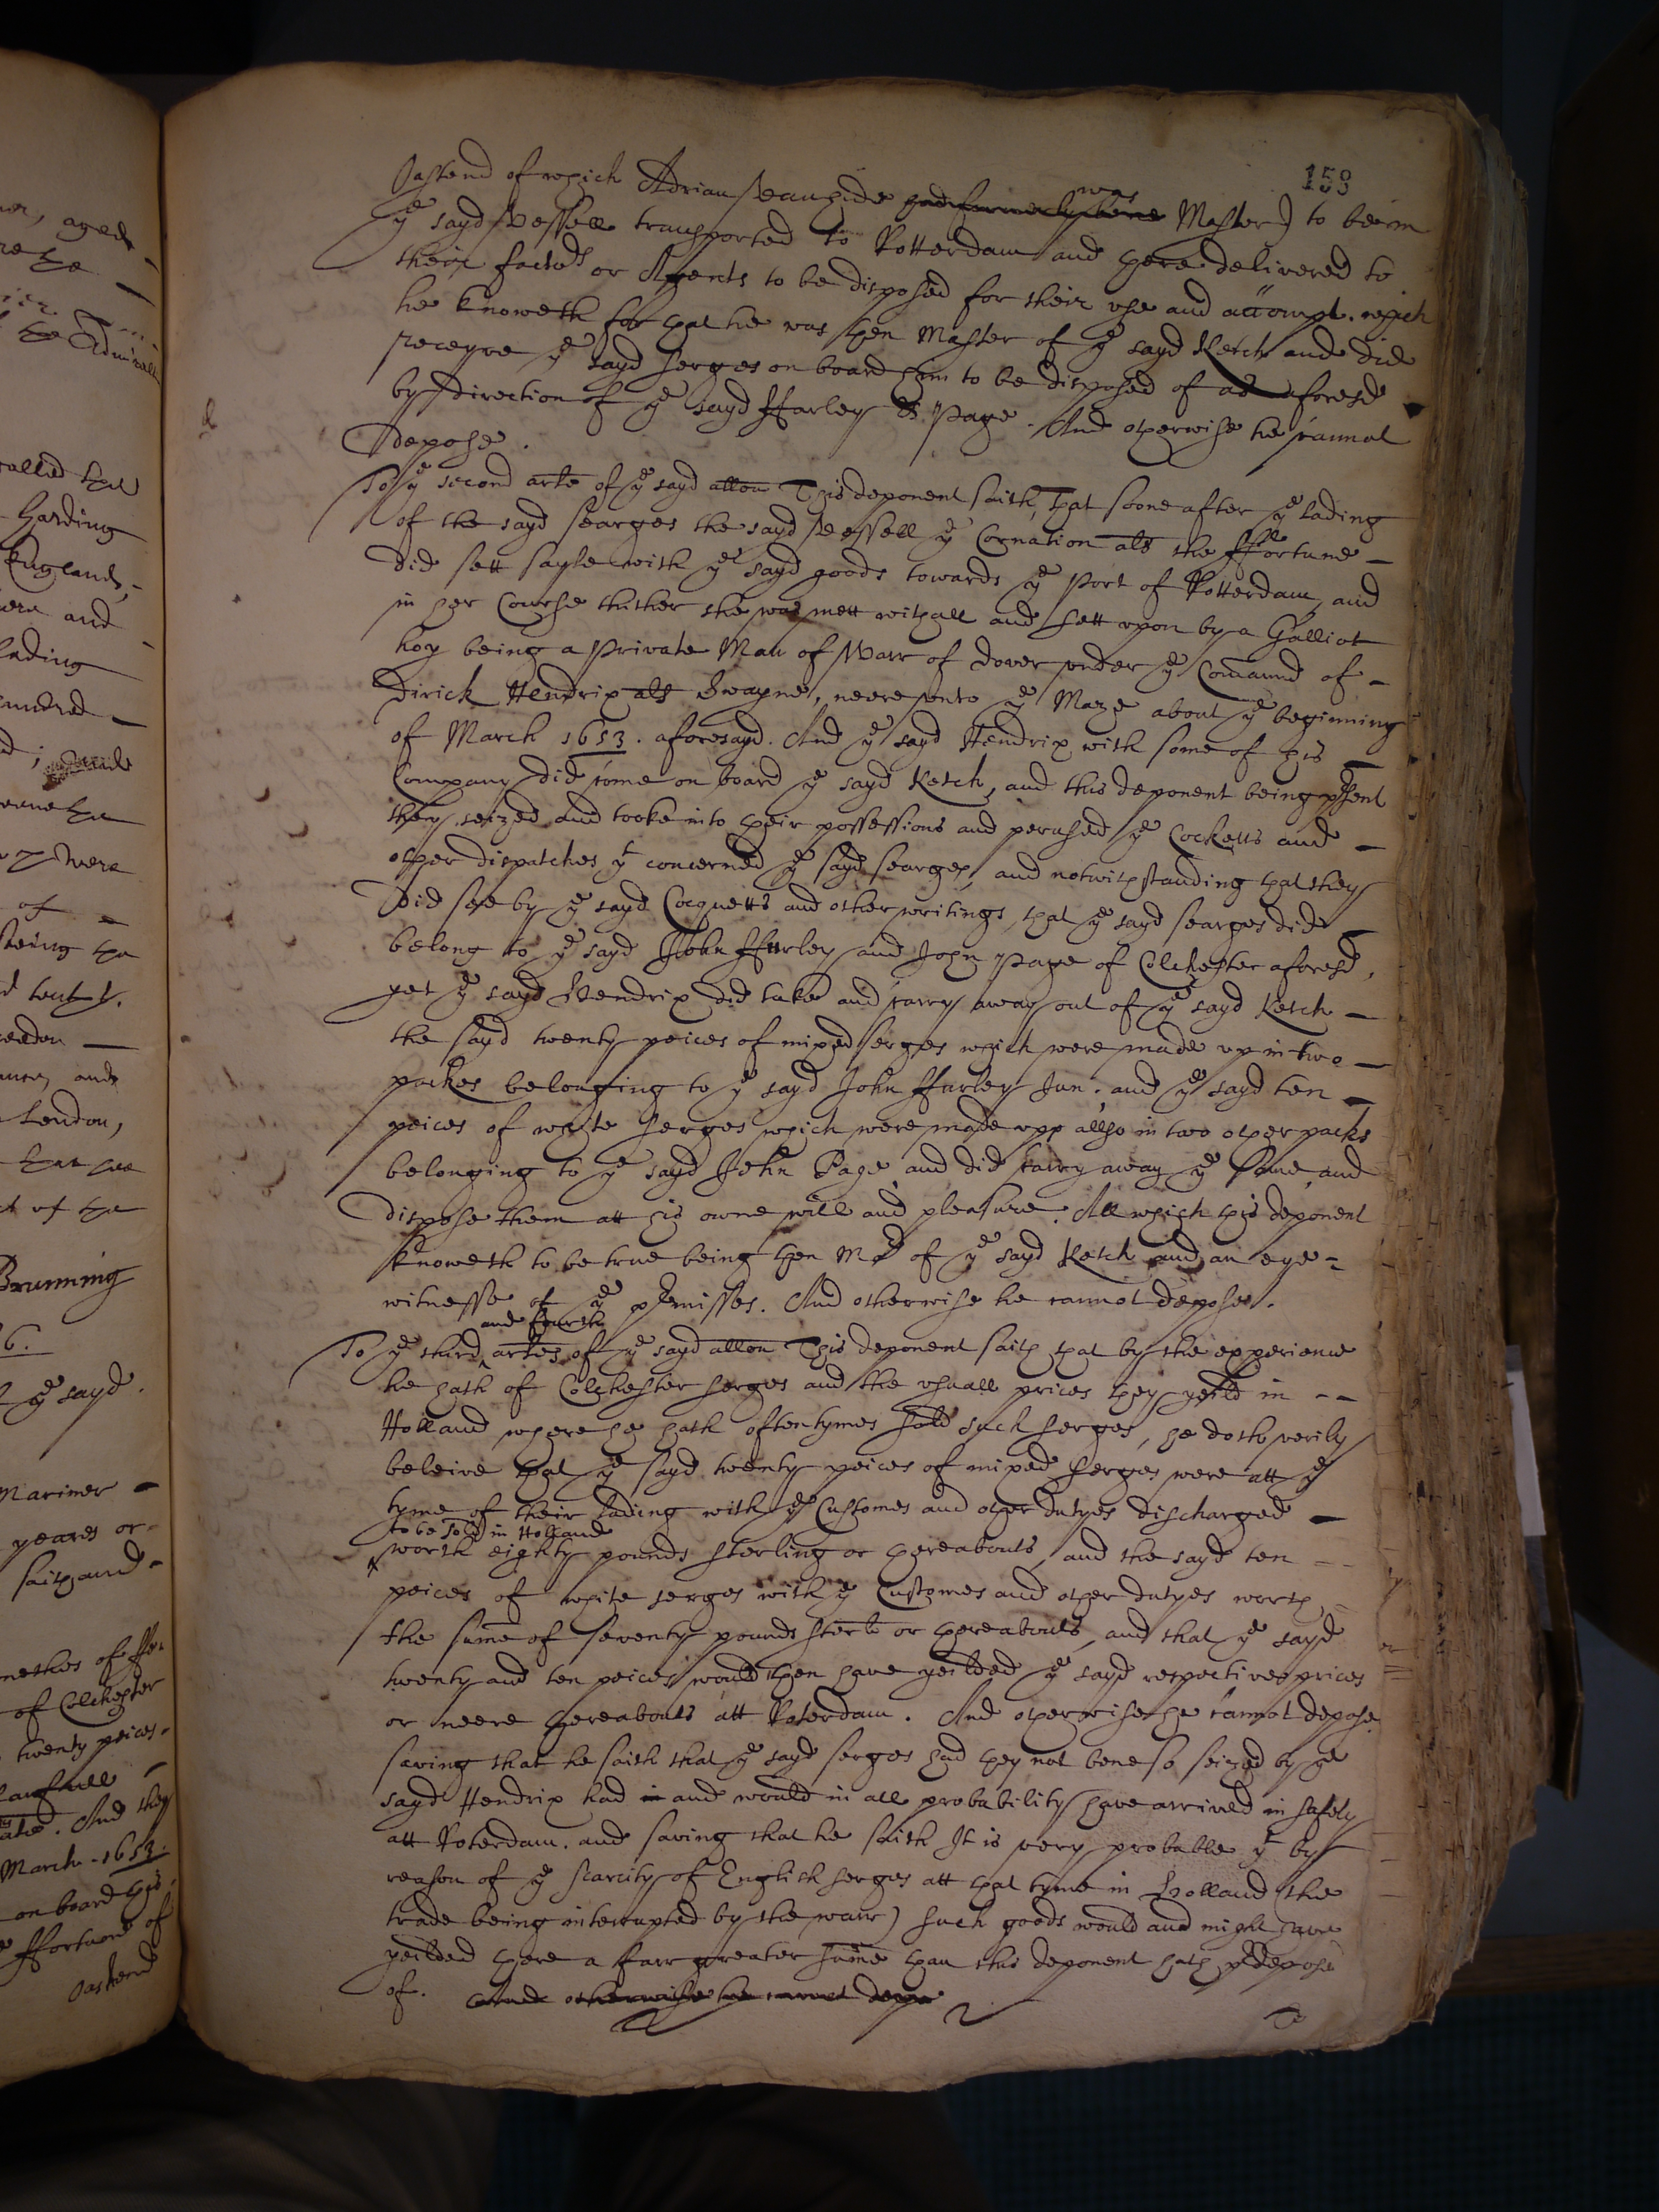 158
Oastend of which Adrian Vanzide had formerly bene was Master) to be in
ye sayd Vessell transported to Rotterdam and there delivered to
their factors or Agents to be disposed for their use and accompt. which
he knoweth for that he was then Master of ye sayd Ketch and did
receyve ye sayd serges on board him to be disposed of as aforesd
by direction of ye sayd Ffurley & Page. And otherwise he cannot
depose.
To ye second arte of ye sayd allon This deponent saith, that soone after ye lading
of the sayd searges the sayd Vessell ye Cornation als the Ffortune -
did sett sayle with ye sayd goods towards ye Port of Rotterdam, and
in her Course thither she was mett withall and sett upon by a Galliot
hoy being a Private Man of Warr of dover under ye Comaund of -
Dirick Hendrix als Swayne, neere unto ye Maze about ye beginning
of March 1653. aforesayd. And ye sayd Hendrix with some of his -
Company did come on board ye sayd Ketch, and this deponent being psent
they seized and tooke into their possessions and perused ye Cocketts and -
other dispatches yt concerned ye sayd searges, and notwithstanding that they
did see by ye sayd Cocquetts and other writings, that ye sayd searges did -
belong to ye sayd John Ffurley and John Page of Colchester aforesd,
yet ye sayd Hendrix did take and carry away out of ye sayd Ketch -
the sayd twenty peices of mixed serges which were made up in two -
packes belonging to ye sayd John Ffurley Jun. and ye sayd ten -
peices of white serges which were made upp allso in two other packs
belonging to ye sayd John Page and did carry away ye same, and
dispose them att his owne will and pleasure. All which this deponent
knoweth to be true being then Mr of ye sayd Ketch and an eye-
witnesse of ye pmisses. And otherwise he cannot depose.
and fourth
To ye third artes of ye sayd allon This deponent saith that by the experience
he hath of Colchester serges and the usuall prices they yeild in - -
Holland where he hath oftentymes sold such serges, he doth verily
beleive that ye sayd twenty peices of mixed serges were att ye
tyme of their lading with ye Customes and other dutyes discharged -
to be sold in Holland
worth eighty pounds sterling or thereabouts, and the sayd ten - -
peices of white serges with ye Customes and other dutyes worth
the sume of seventy pounds sterl or thereabouts, and that ye sayd
twenty and ten peices would then have yeilded ye sayd respective prices
or neere thereabouts att Roterdam. And otherwise he cannot depose
saving that he saith that ye sayd serges had they not bene so seized by ye
sayd Hendrix had in and would in all probability have arrived in safety
att Roterdam. and saving that he saith It is very probable yt by
reason of ye scarcity of English serges att that tyme in Holland (the
trade being interrupted by the warr) such goods would and might have
yeilded there a farr greater sume than this deponent hath pdeposed
of. And otherwise he cannot depo